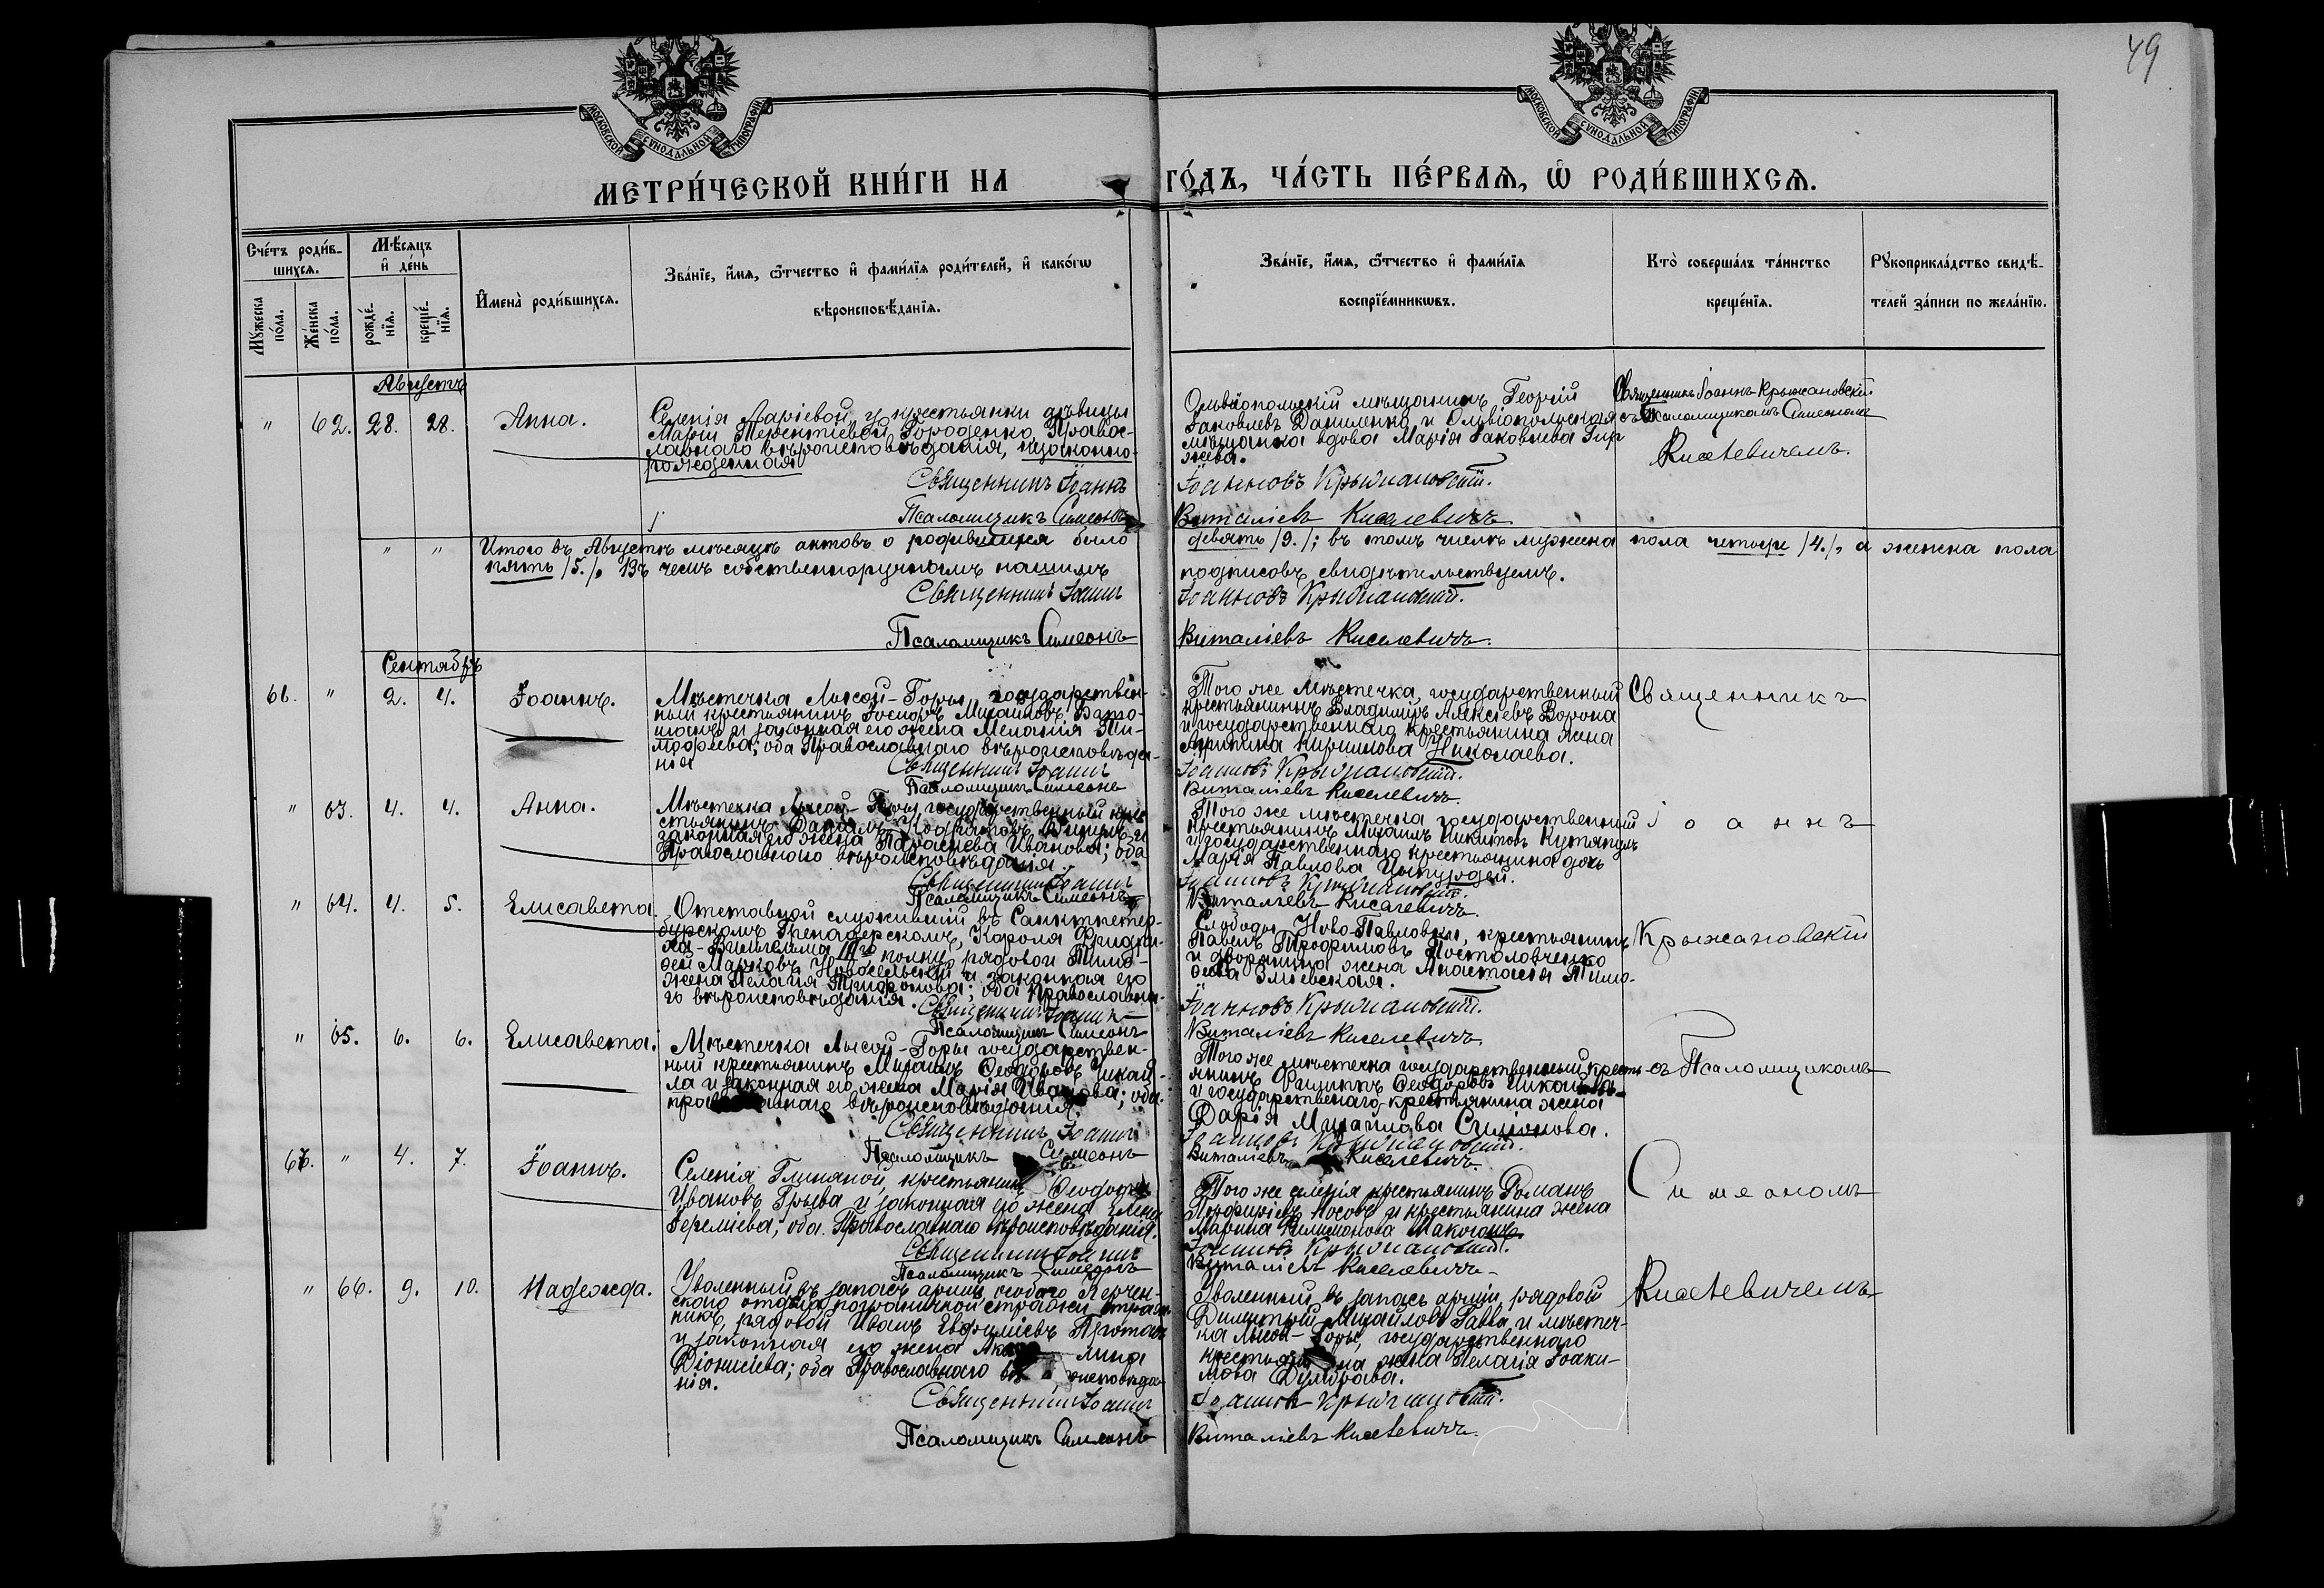 49
МОСКОВСКОЙ СѴНОДАЛЬНОЙ ТИПОГРАФІИ
МОСКОВСКОЙ СѴНОДАЛЬНОЙ ТИПОГРАФІИ
МЕТРИ́ЧЕСКОЙ КНИ́ГИ НА ГО́ДЪ, ЧА́СТЬ ПЕ́РВАЯ, Ѡ РОДИ́ВШИХСЯ.
Сче́тъ роди́в-
шихся.
Мѣ́сяцъ
и де́нь
Мꙋ́жеска по́ла.
Же́нска по́ла.
рожде́-нїя.
креще́-нїя.
Имена̀ роди́вшихся.
Зва́нїе, и́мя, ѻ́тчество и фами́лїя роди́телей, и како́гѡ
вѣроисповѣ́данїя.
Зва́нїе, и́мя, ѻ́тчество и фами́лїя
воспрїе́мникѡвъ.
Кто̀ соверша́лъ та́инство
креще́нїя.
Рꙋкоприкла́дство свидѣ́-
телей за́писи по жела́нїю.
Августъ
" 62. 28. 28. Анна.
Селенія Маріевой, у крестьянки дѣвицы
Маріи Терентіевой Городенко, Правос-
лавнаго вѣроисповѣданія, незаконно-
рожденная
Священникъ Іоаннъ
Псаломщикъ Симеонъ
Ольвіопольскій мѣщанинъ Георгій
Іаковлевъ Даниленко и Ольвіопольская
мѣщанка вдова Марія Іаковлева
жева.
Іоанновъ Крыжановскій.
Виталіевъ Киселевичъ
Священникъ Іоаннъ Крыжановскій
съ Псаломщикомъ Симеономъ
Киселевичемъ.
" " Итого въ Августѣ мѣсяцѣ актовъ о родившихся было девять /9./; въ томъ числѣ мужеска пола четыре /4./, а женска пола
пять /5./, въ чемъ собственноручнымъ нашимъ подписовъ свидѣтельствуемъ.
Священникъ Іоаннъ Іоанновъ Крыжановскій.
Псаломщикъ Симеонъ Виталіевъ Киселевичъ.
Сентябрь
61. " 2. 4. Іоаннъ.
Мѣстечка Лысой-Горы, государствен-
ный крестьянинъ Іосифъ Михайловъ
и законная его жена Меланія Ти-
мофеева; оба Православнаго вѣроисповѣда-
нія
Священникъ Іоаннъ
Псаломщикъ Симеонъ
Того же мѣстечка, государственный
крестьянинъ Владиміръ Алексіевъ Ворона
и государственнаго крестьянина жена
Кирилова Николаева.
Іоанновъ Крыжановскій.
Виталіевъ Киселевичъ.
Священникъ
" 63. 4. 4. Анна.
Мѣстечка Лысой-Горы государственный кре-
стьянинъ Даніилъ и
законная его жена Параскева Иванова; оба
Православнаго вѣроисповѣданія.
Священникъ Іоаннъ
Псаломщикъ Симеонъ
Того же мѣстечка государственный
крестьянинъ Михаилъ Никитовъ
и государственнаго крестьянина дочь
Марія Павлова
Іоанновъ Крыжановскій.
Виталіевъ Киселевичъ.
Іоаннъ
" 64. 4. 5. Елисавета.
Отставной служившій въ Санктпетер-
бурскомъ Гренадерскомъ, Короля Фридри-
ха-Вильгельма III го полку, рядовой Тимо-
фей Марковъ Новосельскій и законная его
жена Пелагія Трифонова; оба Православна-
го вѣроисповѣданія.
Священникъ Іоаннъ
Псаломщикъ Симеонъ
Слободы Ново-Павловки, крестьянинъ
Павелъ Трофимовъ Постоловченко
и дворянина жена Анастасія Тимо-
феева Змѣевская.
Іоанновъ Крыжановскій.
Виталіевъ Киселевичъ.
Крыжановскій
" 65. 6. 6. Елисавета.
Мѣстечка Лысой-Горы государствен-
ный крестьянинъ Михаилъ Ѳеодоровъ Чикай-
ла и законная его жена Марія Иванова; оба
вѣроисповѣданія.
Священникъ Іоаннъ
Псаломщикъ Симеонъ
Того же мѣстечка государственный кресть-
янинъ Филиппъ Ѳеодоровъ
и государственнаго крестьянина жена
Дарія Михайлова Симонова.
Іоанновъ Крыжановскій.
Виталіевъ Киселевичъ.
съ Псаломщикомъ
" 4. 7. Іоаннъ.
Селенія Глиняной, крестьянинъ
Ивановъ Грыва и законная его жена
Іереміева; оба Православнаго вѣроисповѣданія.
Священникъ Іоаннъ
Псаломщикъ Симеонъ
Того же селенія крестьянинъ Романъ
Порфиріевъ Носовъ и крестьянина жена
Марина Филимонова
Іоанновъ Крыжановскій.
Виталіевъ Киселевичъ.
Симеономъ
" 66. 9. 10. Надежда.
Уволенный въ запасъ арміи, особаго Керчен-
скаго отдѣла пограничной стражи страж-
никъ, рядовой Иванъ Евфиміевъ
и законная его жена
Діонисіева; оба Православнаго
нія.
Священникъ Іоаннъ
Псаломщикъ Симеонъ
Уволенный въ запасъ арміи, рядовой
Димитрій Михайловъ Савва и мѣстеч-
ка Лысой-Горы, государственнаго
крестьянина жена Пелагія Іоаки-
мова Думбрава.
Іоанновъ Крыжановскій.
Виталіевъ Киселевичъ.
Киселевичемъ